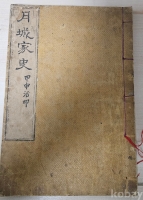 月城家史
甲申活印
kobay